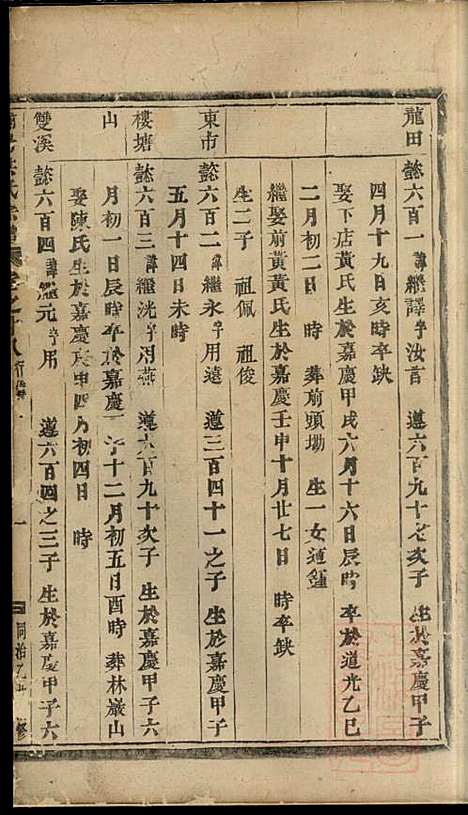 龍田 懿六百一 諱繼譯 字汝言 遵六百九十七次子 生於嘉慶甲子
四月十九日亥時卒缺
娶下店黃氏生於嘉慶甲戌六月十六日辰時 卒於道光乙巳
二月初二日 時 葬前頭坳 生一女適鍾
繼娶前黃黃氏生於嘉慶壬申十月廿七日 時卒缺
生二子 祖佩 祖俊
東市 懿六百二 諱繼永 字用遠 遵三百四十一之子 生於嘉慶甲子
五月十四日未時
樓塘 懿六百三 諱繼洸 字用燕 遵六百九十次子 生於嘉慶甲子六
山 月初一日辰時卒於嘉慶 子十二月初五日酉時 葬林嚴山
娶陳氏生於嘉慶庚申四月初四日 時
雙溪 懿六百四 諱繼元 字用 遵六百四之三子 生於嘉慶甲子六
卷之 八 行傳 一 同治乙丑 修